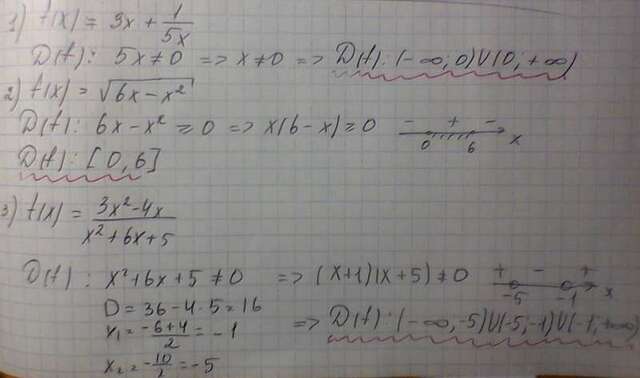 1) f(x) = 3x + 1/5x
D(f): 5x ≠ 0 => x ≠ 0 => D(f): (-∞; 0)U(0; +∞)
2) f(x) = √6x - x²
D(f): 6x - x² ≥ 0 => x(6 - x) ≥ 0 - + - 0 6 x
D(f): [0, 6]
3) f(x) = 3x² - 4x / x² + 6x + 5
D(f): x² + 6x + 5 ≠ 0 => (x+1)(x+5) ≠ 0 + - + -5 -1 x
D = 36 - 4·5 = 16
x₁ = -6+4/2 = -1 => D(f): (-∞, -5)U(-5; -1)U(-1, +∞)
x₂ = -10/2 = -5